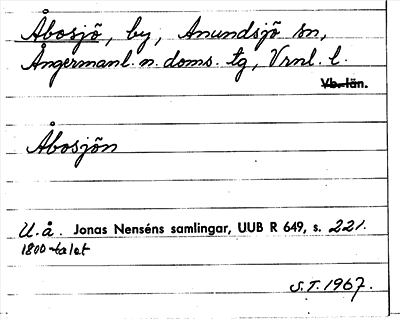 Åbosjö, by, Anundsjö sn,
Ångermanl. n. doms. tg, Vrnl. l.
Vb. län.
Åbosjön
U.å. Jonas Nenséns samlingar, UUB R 649, s. 221.
1800-talet
S.T. 1967.